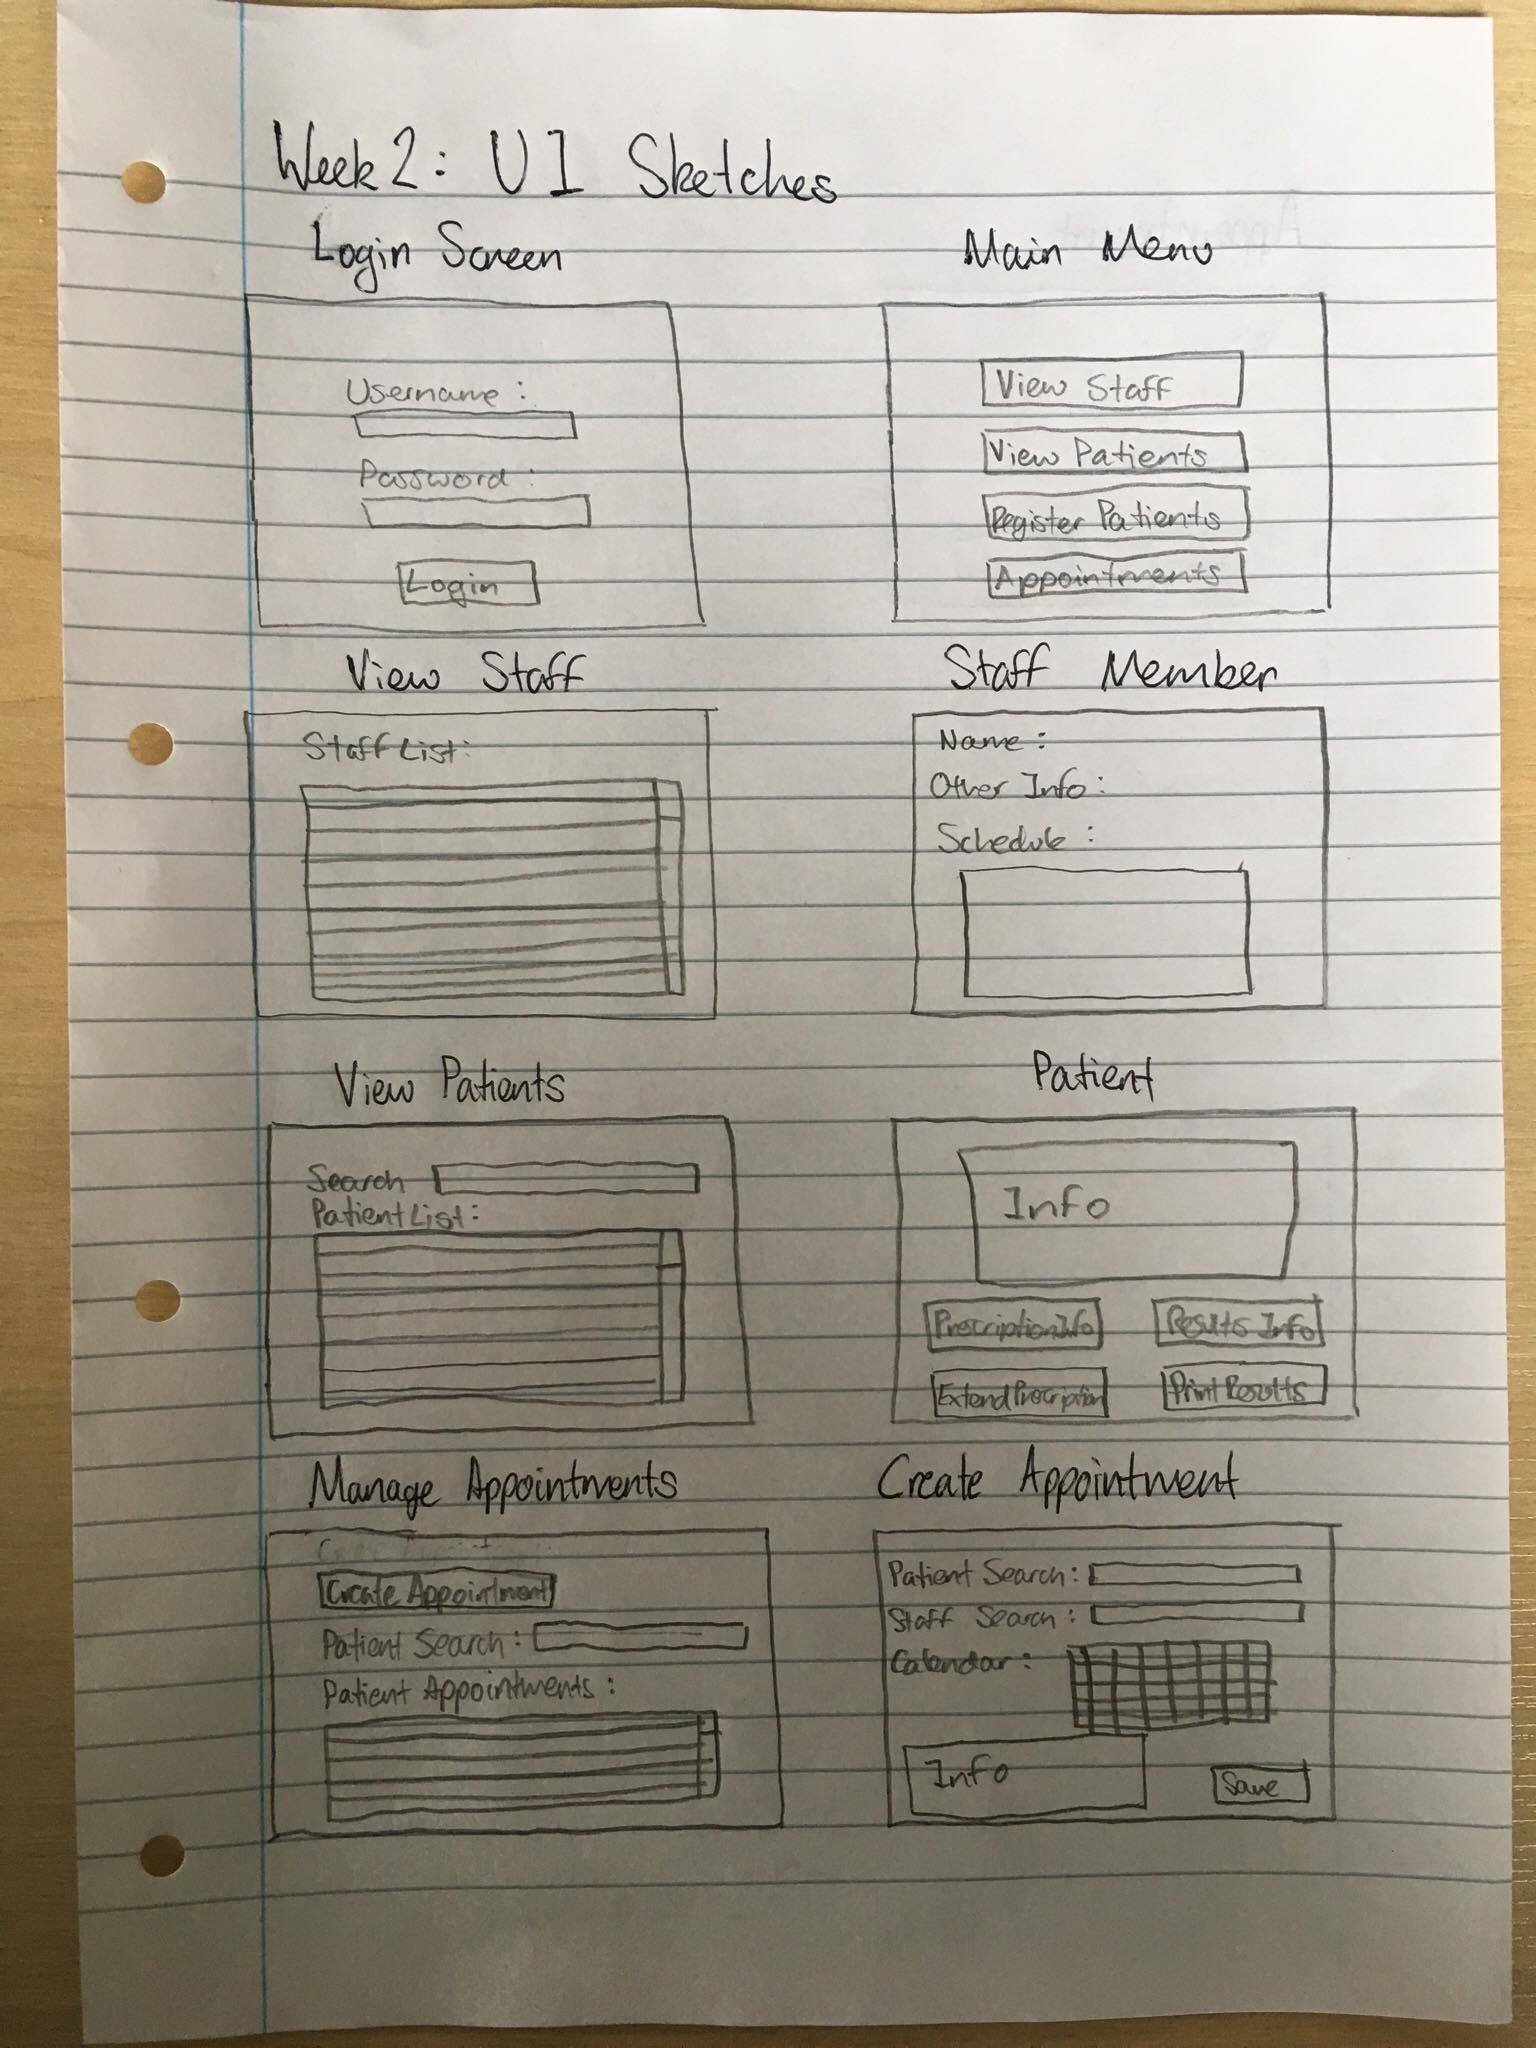 Week 2: UI Sketches
Login Screen
Username:
Password:
Login
Main Menu
View Staff
View Patients
Register Patients
Appointments
View Staff
Staff List:
Staff Member
Name:
Other Info:
Schedule:
View Patients
Search
Patient List:
Patient
Info
Prescription Info
Results Info
Extend Prescription
Print Results
Manage Appointments
Create Appointment
Patient Search:
Patient Appointments:
Create Appointment
Patient Search:
Staff Search:
Calendar:
Info
Save